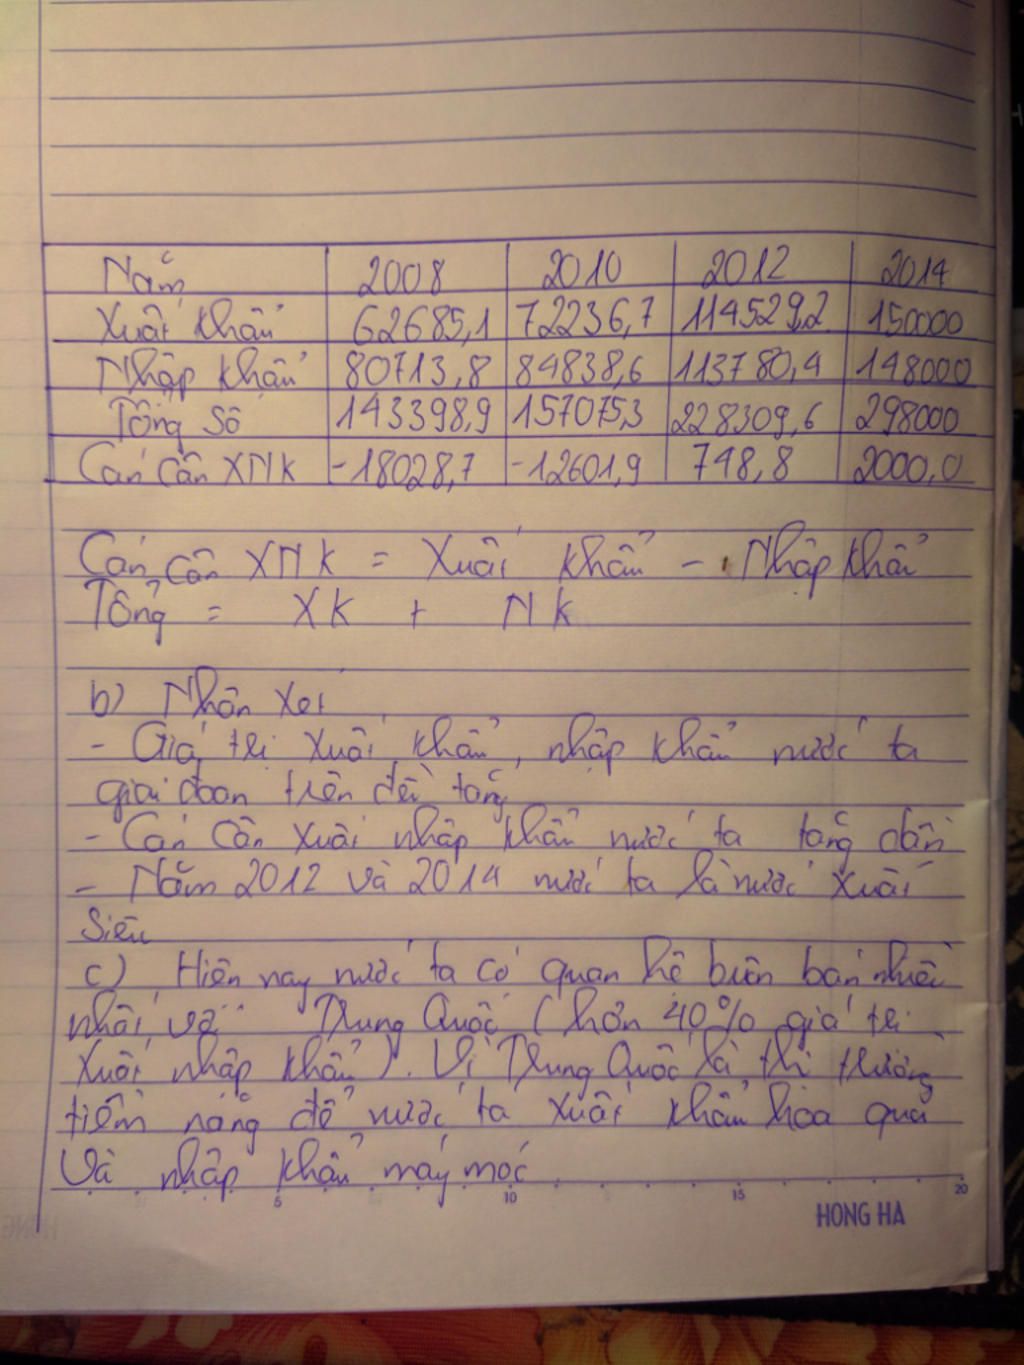 Năm 2008 2010 2012 2014
Xuất khẩu 62685,1 72236,7 114529,2 150000
Nhập khẩu 80713,8 84838,6 113780,4 148000
Tổng số 143398,9 157075,3 228309,6 298000
Cán cân XNK -18028,7 -12601,9 748,8 2000,0
Cán cân XNK = Xuất khẩu - Nhập khẩu
Tổng = XK + NK
b) Nhận xét
- Giá trị xuất khẩu, nhập khẩu nước ta
giai đoạn trên đều tăng
- Cán cân xuất nhập khẩu nước ta tăng dần
- Năm 2012 và 2014 nước ta là nước xuất
siêu
c) Hiện nay nước ta có quan hệ buôn bán nhiều
nhất với Trung Quốc (hơn 40% giá trị
xuất nhập khẩu). Vì Trung Quốc là thị trường
tiềm năng để nước ta xuất khẩu hoa quả
và nhập khẩu máy móc
5 10 15 20
HONG HA